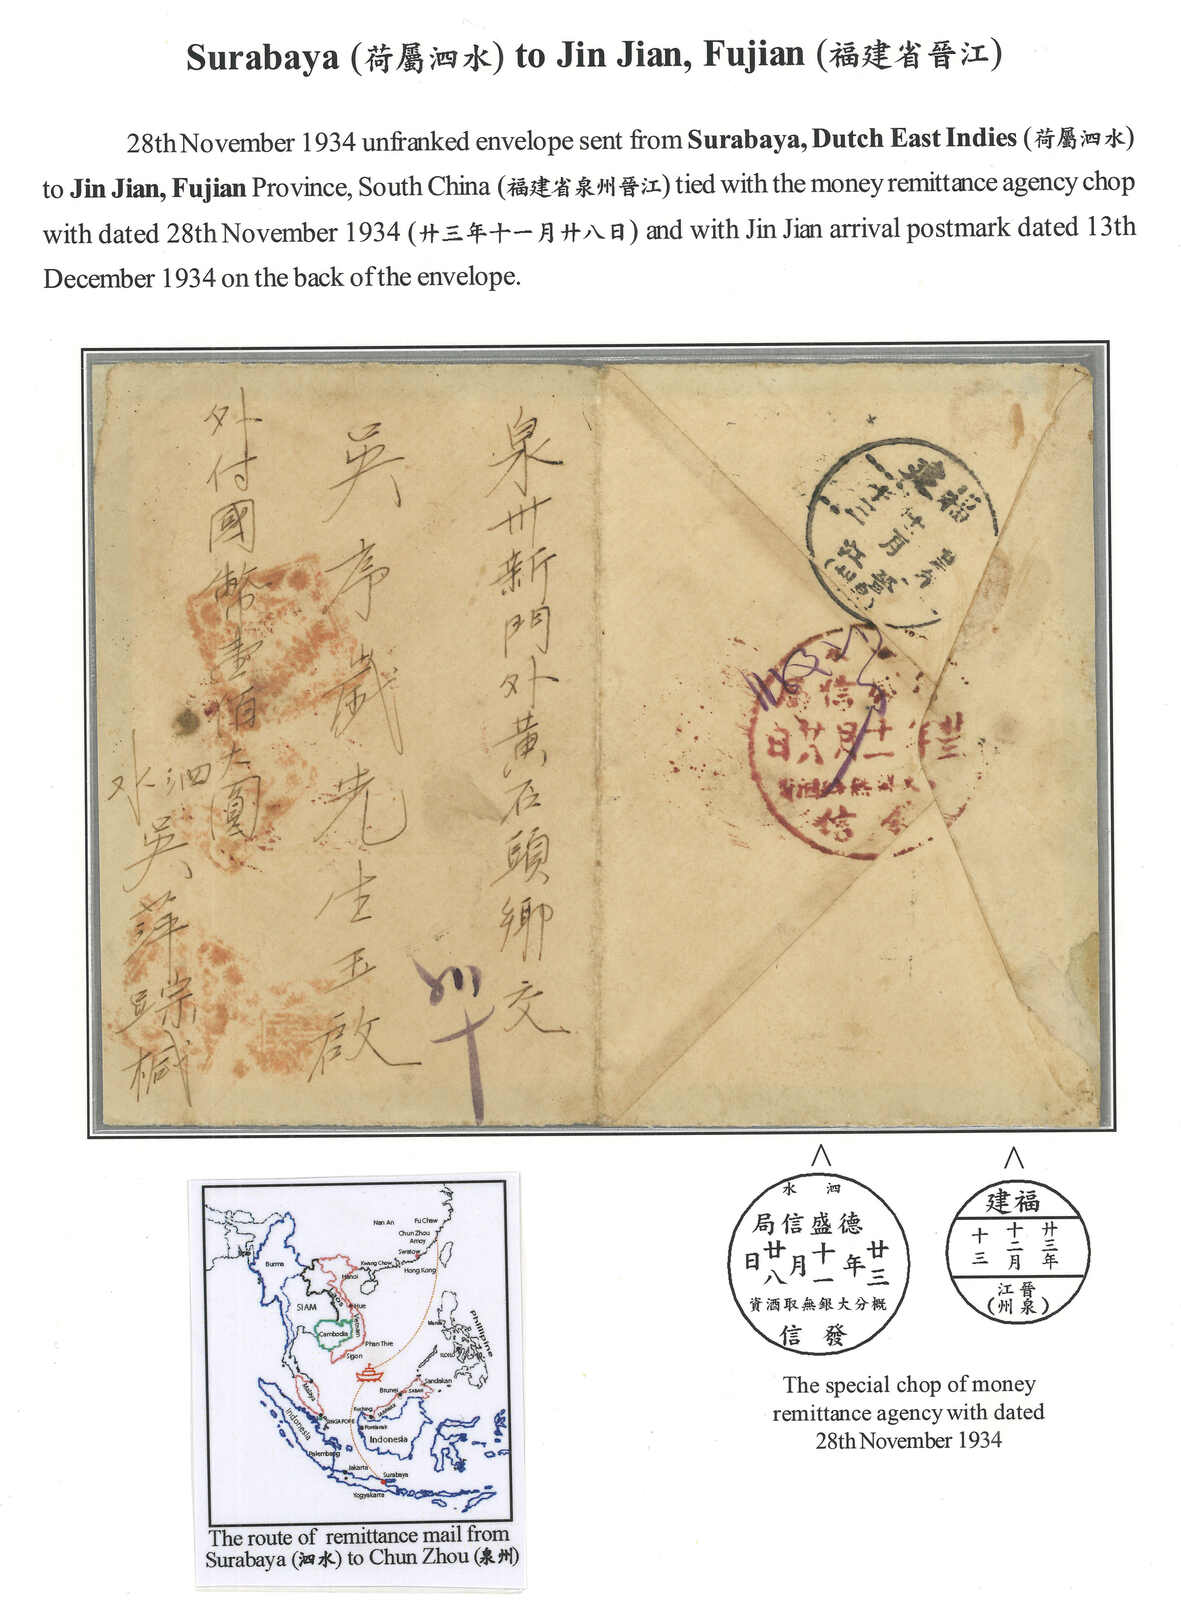 Surabaya (荷屬泗水) to Jin Jian, Fujian (福建省晉江)
28th November 1934 unfranked envelope sent from Surabaya, Dutch East Indies (荷屬泗水)
to Jin Jian, Fujian Province, South China (福建省泉州晉江) tied with the money remittance agency chop
with dated 28th November 1934 (廿三年十一月廿八日) and with Jin Jian arrival postmark dated 13th
December 1934 on the back of the envelope.
泉州新門外黃石頭鄉交
吳序
先生玉啟
外付國幣壹佰大圓
泗水
吳萍踪緘
福
泉
十三
月
晉江
信局
廿三年十一月廿八日
信
Burma
Nan An
Fu Chow
Chun Zhou
Amoy
Swatow
Kwang Chow
Hong Kong
Hanoi
SIAM
Laos
Hue
Vietnam
Cambodia
Phan Thie
Sigon
Manila
Phillipine
ILOILO
Malaya
SINGAPORE
Brunei
SABAH
Sandakan
SARAWAK
Kuching
Pontianak
Indonesia
Indonesia
Palembang
Jakarta
Surabaya
Yogyakarta
The route of remittance mail from
Surabaya (泗水) to Chun Zhou (泉州)
泗水
德盛信局
廿三年十一月廿八日
概分大銀無取酒資
發信
福建
廿三年
十二月
十三
晉江
(泉州)
The special chop of money
remittance agency with dated
28th November 1934